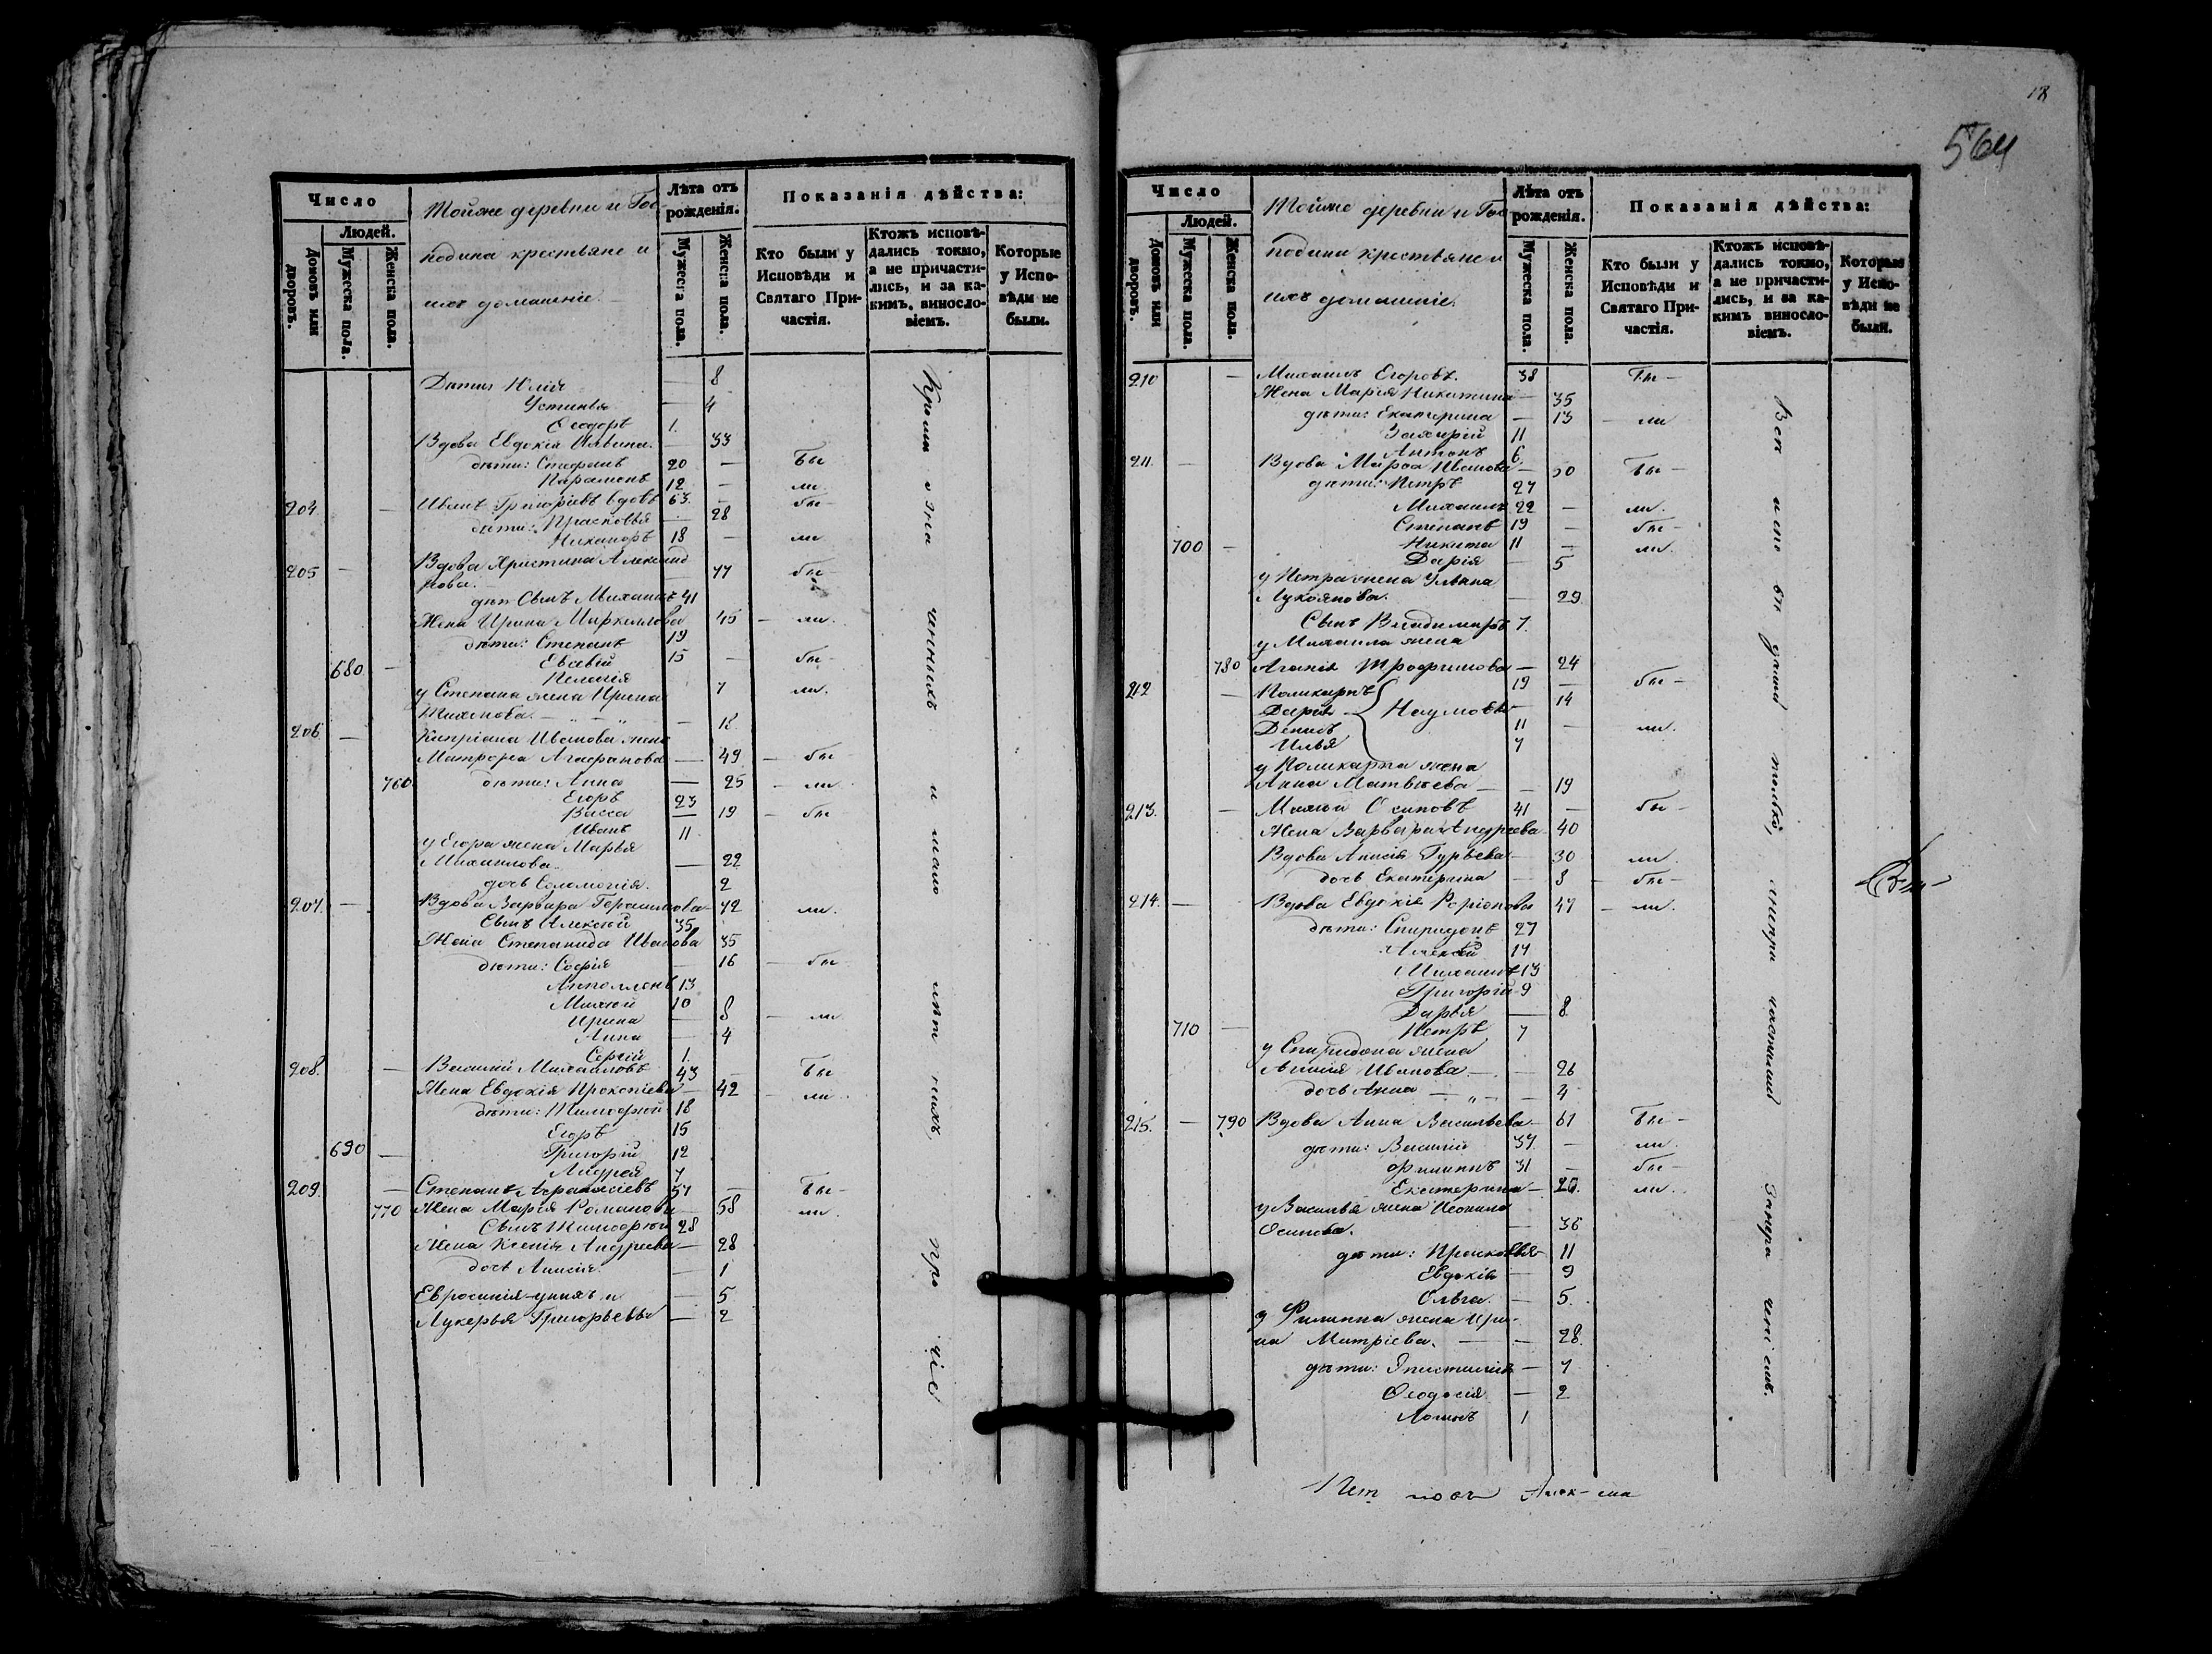 Число
Людей.
Домовъ или дворовъ.
Мужеска пола.
Женска пола.
Тойже деревни и Гос-
подина крестьяне и
ихъ домашніе.
Лѣта отъ рожденія.
Мужеска пола.
Женска пола.
Показанія дѣйства:
Кто были у Исповѣди и Святаго При-частія.
Ктожъ исповѣ-дались токмо, а не причасти-лись, и за ка-кимъ. виносло-віемъ.
Которые у Испо-вѣди не были.
Дѣти: Юлія — 8
Устинья — 4
Ѳеодоръ 1.
Вдова Евдокія Ильина. — 33
дѣти: Стефанъ 20 — Бы
Парамонъ 12 — ли
204 — Иванъ Григорьевъ вдовъ 63. — бы
дѣти: Прасковья — 28
Никаноръ 18 — ли
205 — Вдова Христина Александ
рова. — 77 бы
дѣт Сынъ Михаилъ 41
Жена Ирина Маркеллова 45 — ли.
дѣти: Степанъ 19
680 — Евсевій 15 — бы
Пелагія 7 ли.
у Степана жена Ирина
Тихонова. — 18
206 — Кипріана Иванова жена
Матрона Агафонова — 49 — бы
760 дѣти: Анна — 25 — ли
Егоръ 23
Васса — 19 — бы
Иванъ 11
у Егора жена Марья
Михаилова. — 22
дочь Соломонія. 2
207. — Вдова Варвара Герасимова — 72 ли.
Сынъ Алексѣй 35
Жена Степанида Иванова 35
дѣти: Софія — 16 — бы
Апполлонъ 13
Михѣй 10
Ирина — 8 — ли
Анна — 4
Сергій 1.
208. — Василій Михайловъ 43 — Бы
Жена Евдокія Прокопіева — 42 — ли
дѣти: Тимофей 18
Егоръ 15
690 — Григорій 12
Андрей 7
209. — Степанъ Афанасіевъ 57 — Бы
770 Жена Марія Романова — 58 ли
Сынъ Тимофей 28
Жена Ксенія Андреева — 28
дочь Анисія. — 1
Евросинія — 5
Лукерья Григорьевы — 2
Кромѣ
и мало
нихъ,
564
Число
Людей.
Домовъ или дворовъ.
Мужеска пола.
Женска пола.
Тойже деревни и Гос
подина крестьяне и
ихъ домашніе.
Лѣта отъ рожденія.
Мужеска пола.
Женска пола.
Показанія дѣйства:
Кто были у Исповѣди и Святаго При-частія.
Ктожъ исповѣ-дались токмо, а не причасти-лись, и за ка-кимъ виносло-віемъ.
Которые у Испо-вѣди не были.
210 — Михаилъ Егоровъ. 38 Бы —
Жена Марія Никитина — 35
дѣти: Екатерина — 13 — ли
Захарій 11
Антонъ 6.
211. — Вдова Марѳа Иванова — 50 Бы —
дѣти: Петръ 27
Михаилъ 22 — ли.
Степанъ 19 — бы —
700 — Никита 11 — ли.
Дарія — 5
у Петра жена Ульяна
Лукоянова. — 29.
Сынъ Владимиръ 7.
у Михаила жена
780 Агапія Трофимова — 24
212 — Поликарпъ 19 — бы —
Дарья — Наумовы — 14
Денисъ 11 — ли.
Илья 7
у Поликарпа жена
Анна Матвѣева — 19
213. — Михѣй Осиповъ 41 — бы —
Жена Варвара Андреева — 40
Вдова Анисія Гурьева — 30 ли.
дочь Екатерина — 8 — бы —
214. — Вдова Евдокія 47 — ли.
дѣти: Спиридонъ 27
Алексѣй 17
Михаилъ 13
Григорій 9
Дарья — 8
710 — Петръ 7
у Спиридона жена
Анисія Иванова — 26
дочь Анна — 4
215. — 790 Вдова Анна Васильева — 61 Бы —
дѣти: Василій 37. — ли.
Филиппъ 31 — бы —
Екатерина — 20. ли.
у Василья жена
Осипова. — 36
дѣти: Прасковья — 11
Евдокія — 9
Ольга. — 5.
у Филиппа жена Ири-
на Митріева. — 28.
дѣти: — 7
Ѳеодосія — 2
Логинъ 1
только,